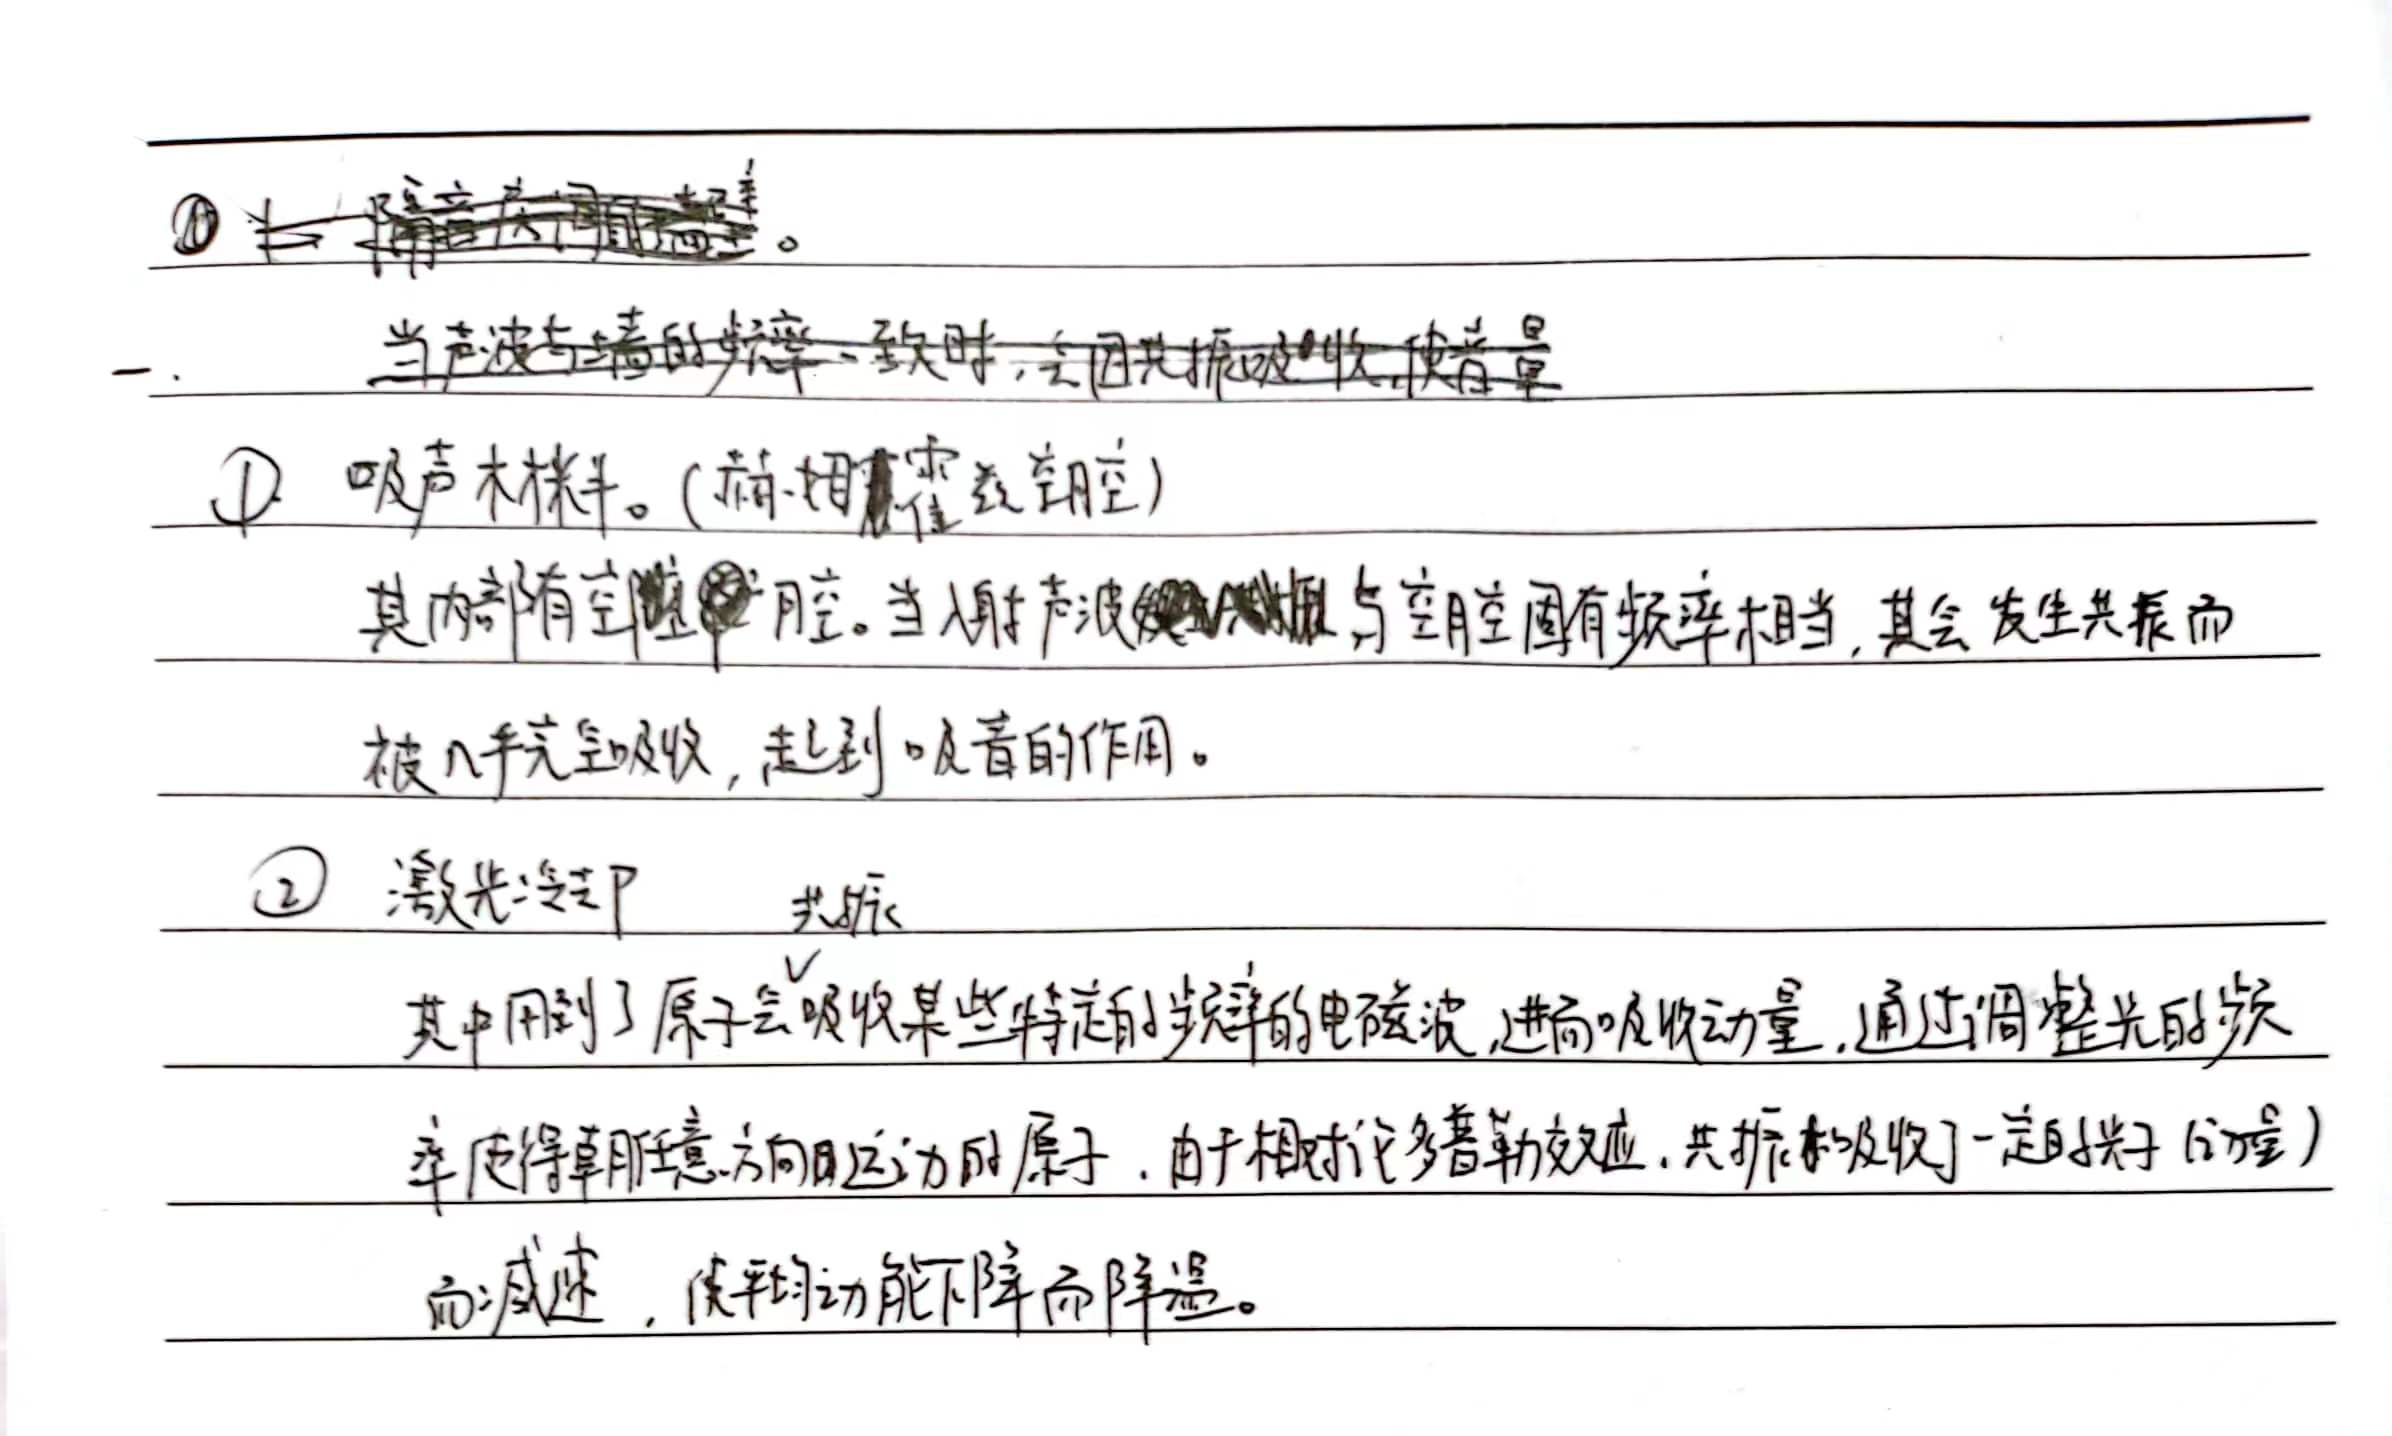 当声波与墙的频率一致时,会因共振吸收,使音量
一.
① 吸声材料。(赫姆霍兹空腔)
其内部有空腔。当入射声波与空腔固有频率相当,其会发生共振而
被几乎完全吸收,起到吸音的作用。
② 激光冷却
共振
其中用到了原子会吸收某些特定的频率的电磁波,进而吸收动量,通过调整光的频
率使得朝任意方向运动的原子,由于相对论多普勒效应,共振吸收了一定的光子(动量)
而减速,使平均动能下降而降温。